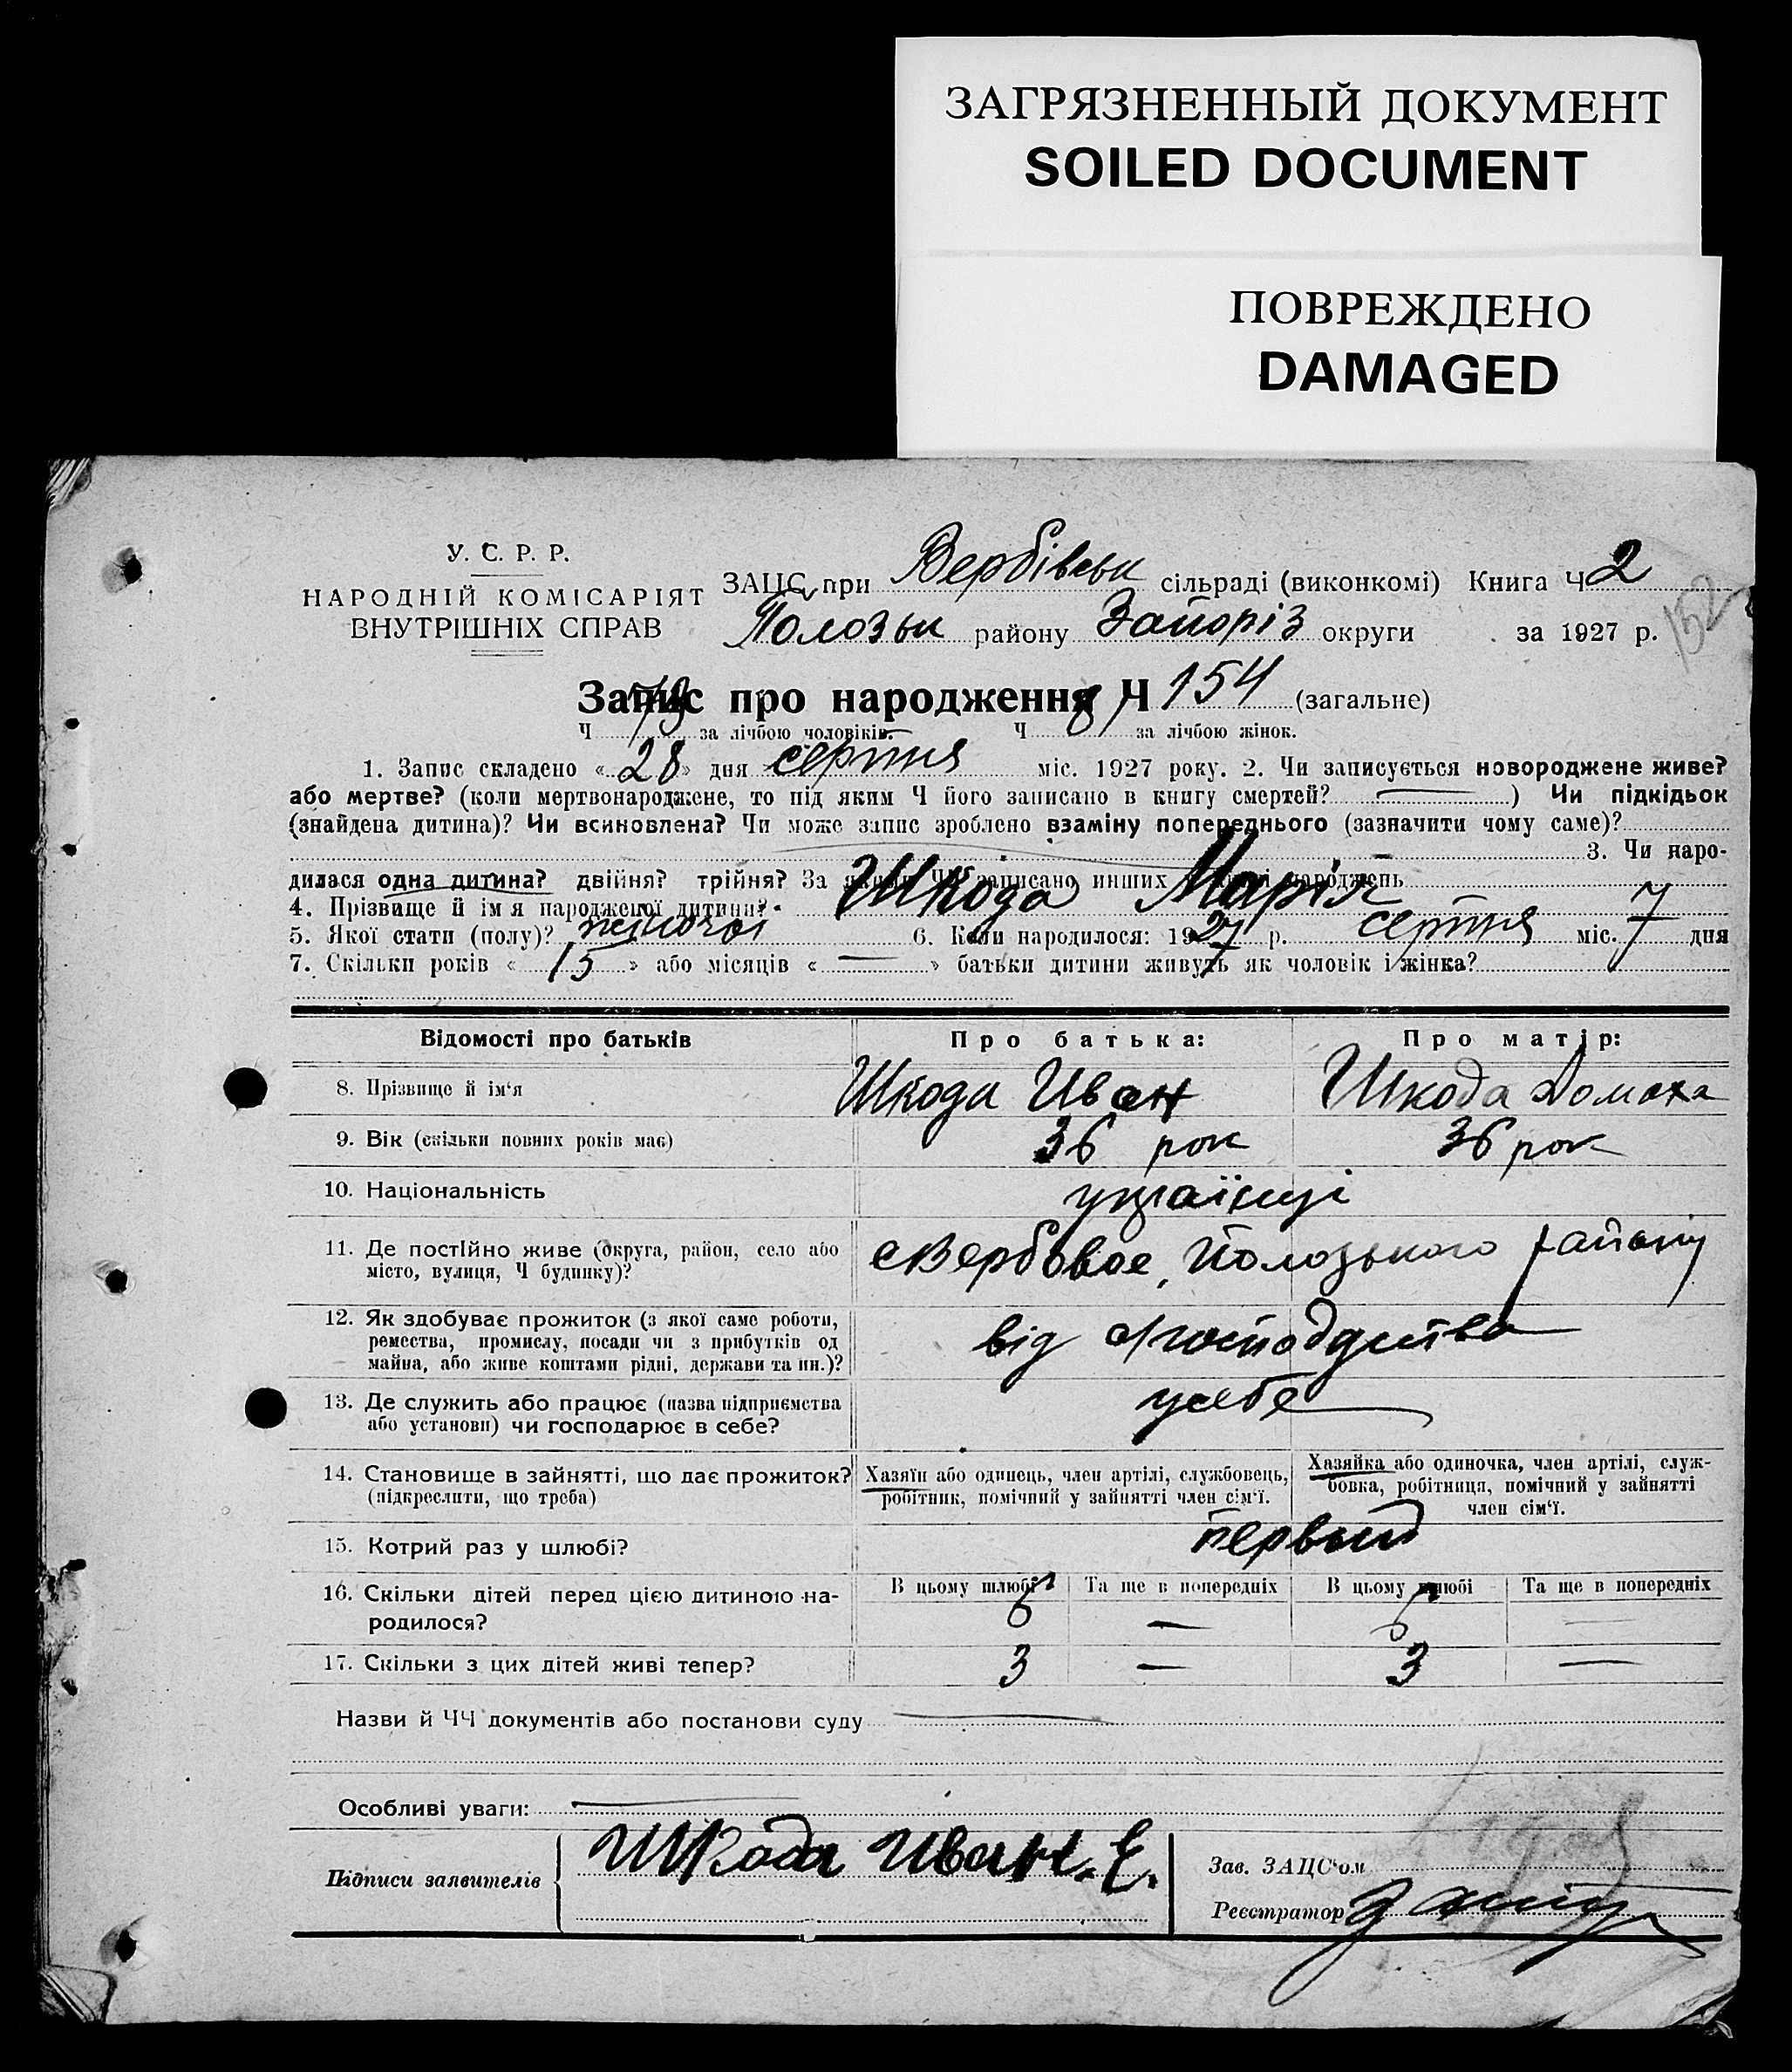 ЗАГРЯЗНЕННЫЙ ДОКУМЕНТ
SOILED DOCUMENT
ПОВРЕЖДЕНО
DAMAGED
У. С. Р. Р.
НАРОДНІЙ КОМІСАРІЯТ
ВНУТРІШНІХ СПРАВ
ЗАЦС при Вербівськ сільраді (виконкомі) Книга Ч 2
152
Пологзьк району Запоріз округи за 1927 р.
Запис про народження Ч 154 (загальне)
Ч 73 за лічбою чоловіків. Ч 81 за лічбою жінок.
1. Запис складено «28» дня серпня міс. 1927 року. 2. Чи записується новороджене живе?
або мертве? (коли мертвонароджене, то під яким Ч його записано в книгу смертей? —) Чи підкідьок
(знайдена дитина)? Чи всиновлена? Чи може запис зроблено взаміну попереднього (зазначити чому саме)?
3. Чи наро-
дилася одна дитина? двійня? трійня? За якими ЧЧ записано инших народжень
4. Прізвище й ім'я народженої дитини? Шкода Марія
5. Якої стати (полу)? жіночої 6. Коли народилося: 1927 р. серпня міс. 7 дня
7. Скільки років «15» або місяців «—» батьки дитини живуть як чоловік і жінка?
Відомості про батьків Про батька: Про матір:
8. Прізвище й ім'я Шкода Иван Шкода Домаха
9. Вік (скільки повних років має) 36 рок 36 рок
10. Національність українці
11. Де постійно живе (округа, район, село або
місто, вулиця, Ч будинку)? с Вербовое, Пологзького району
12. Як здобуває прожиток (з якої саме роботи,
ремества, промислу, посади чи з прибутків од
майна, або живе коштами рідні, держави та ин.)? від господарства
13. Де служить або працює (назва підприємства
або установи) чи господарює в себе? у себе
14. Становище в зайнятті, що дає прожиток?
(підкреслити, що треба)
Хазяїн або одинець, член артілі, службовець,
робітник, помічний у зайнятті член сім'ї.
Хазяйка або одиночка, член артілі, служ-
бовка, робітниця, помічний у зайнятті
член сім'ї.
15. Котрий раз у шлюбі? первый
16. Скільки дітей перед цією дитиною на-
родилося?
В цьому шлюбі Та ще в попередніх В цьому шлюбі Та ще в попередніх
— —
17. Скільки з цих дітей живі тепер? 3 — 3 —
Назви й ЧЧ документів або постанови суду
Особливі уваги:
Підписи заявителів Шкода Иван. Е.
Зав. ЗАЦС'ом
Реєстратор